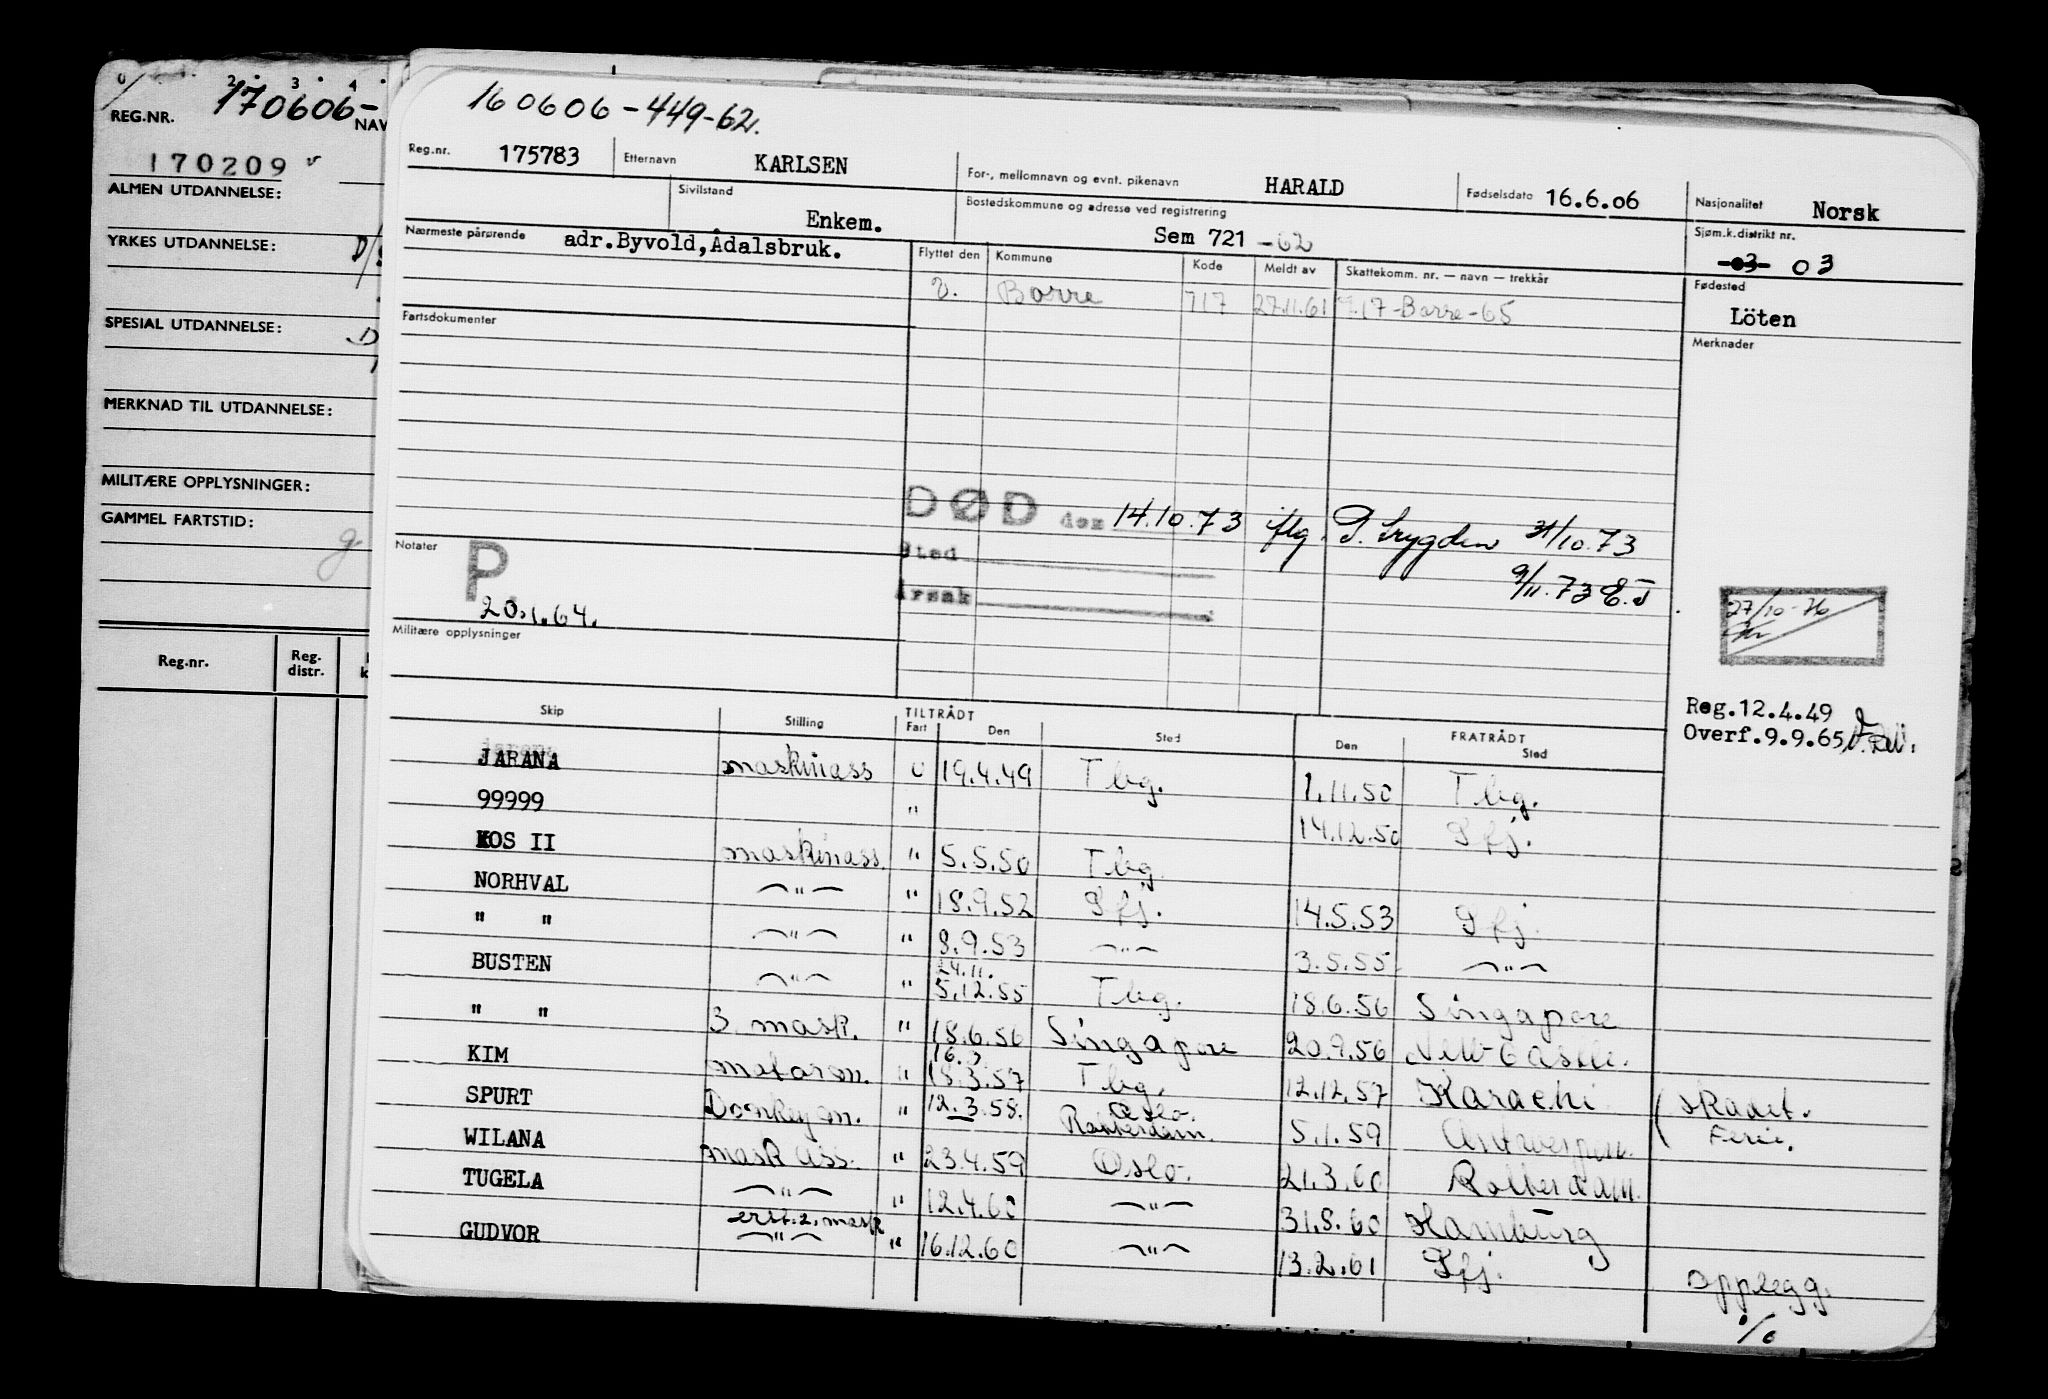 REG.NR. 170606- NAV
170209
ALMEN UTDANNELSE:
YRKES UTDANNELSE:
SPESIAL UTDANNELSE:
MERKNAD TIL UTDANNELSE:
MILITÆRE OPPLYSNINGER:
GAMMEL FARTSTID:
Reg.nr. Reg. distr.
160606-449-62.
Reg.nr. 175783 Etternavn KARLSEN For-, mellomnavn og evnt. pikenavn HARALD Fødselsdato 16.6.06 Nasjonalitet Norsk
Sivilstand Enkem. Bostedskommune og adresse ved registrering Sem 721 -62 Sjøm.k.distrikt nr. -03- 03
Nærmeste pårørende adr.Byvold,Ådalsbruk. Flyttet den Kommune Kode Meldt av Skattekomm. nr. — navn — trekkår Fødested
v. Borre 717 27.11.61 717-Borre-65 Löten
Fartsdokumenter Merknader
DØD den 14.10.73 iflg. P. Trygden 31/10.73
Sted
9/11.73 E.J
Årsak
Notater
P.
20.1.64.
27/10-76
Militære opplysninger
Reg.12.4.49
Overf.9.9.65
Skip Stilling TILTRÅDT Fart Den Sted FRATRÅDT Den Sted
JARANA maskinass U 19.4.49 Tbg. 1.11.50 Tbg.
99999 " 14.12.50 Sfj.
KOS II maskinass. " 5.5.50 Tbg.
NORHVAL —"— " 18.9.52 Sfj. 14.5.53 Sfj.
" " —"— " 8.9.53 —"— 3.5.55 —"—
BUSTEN —"— " 24.11. 5.12.55 Tbg. 18.6.56 Singapore
" " 3 mask. " 18.6.56 Singapore 20.9.56 New-Castle.
KIM motorm. " 16.3 18.3.57 Tbg. 12.12.57 Karachi skadet.
SPURT Donkeym. " 12.3.58. Oslo. Rotterdam. 5.1.59 Antwerpen. Ferie.
WILANA mask ass. " 23.4.59 Oslo. 21.3.60 Rotterdam.
TUGELA —"— " 12.4.60 —"— 31.8.60 Hamburg
GUDVOR erst.2.mask —"— " 16.12.60 —"— 13.2.61 Sfj. opplegg.